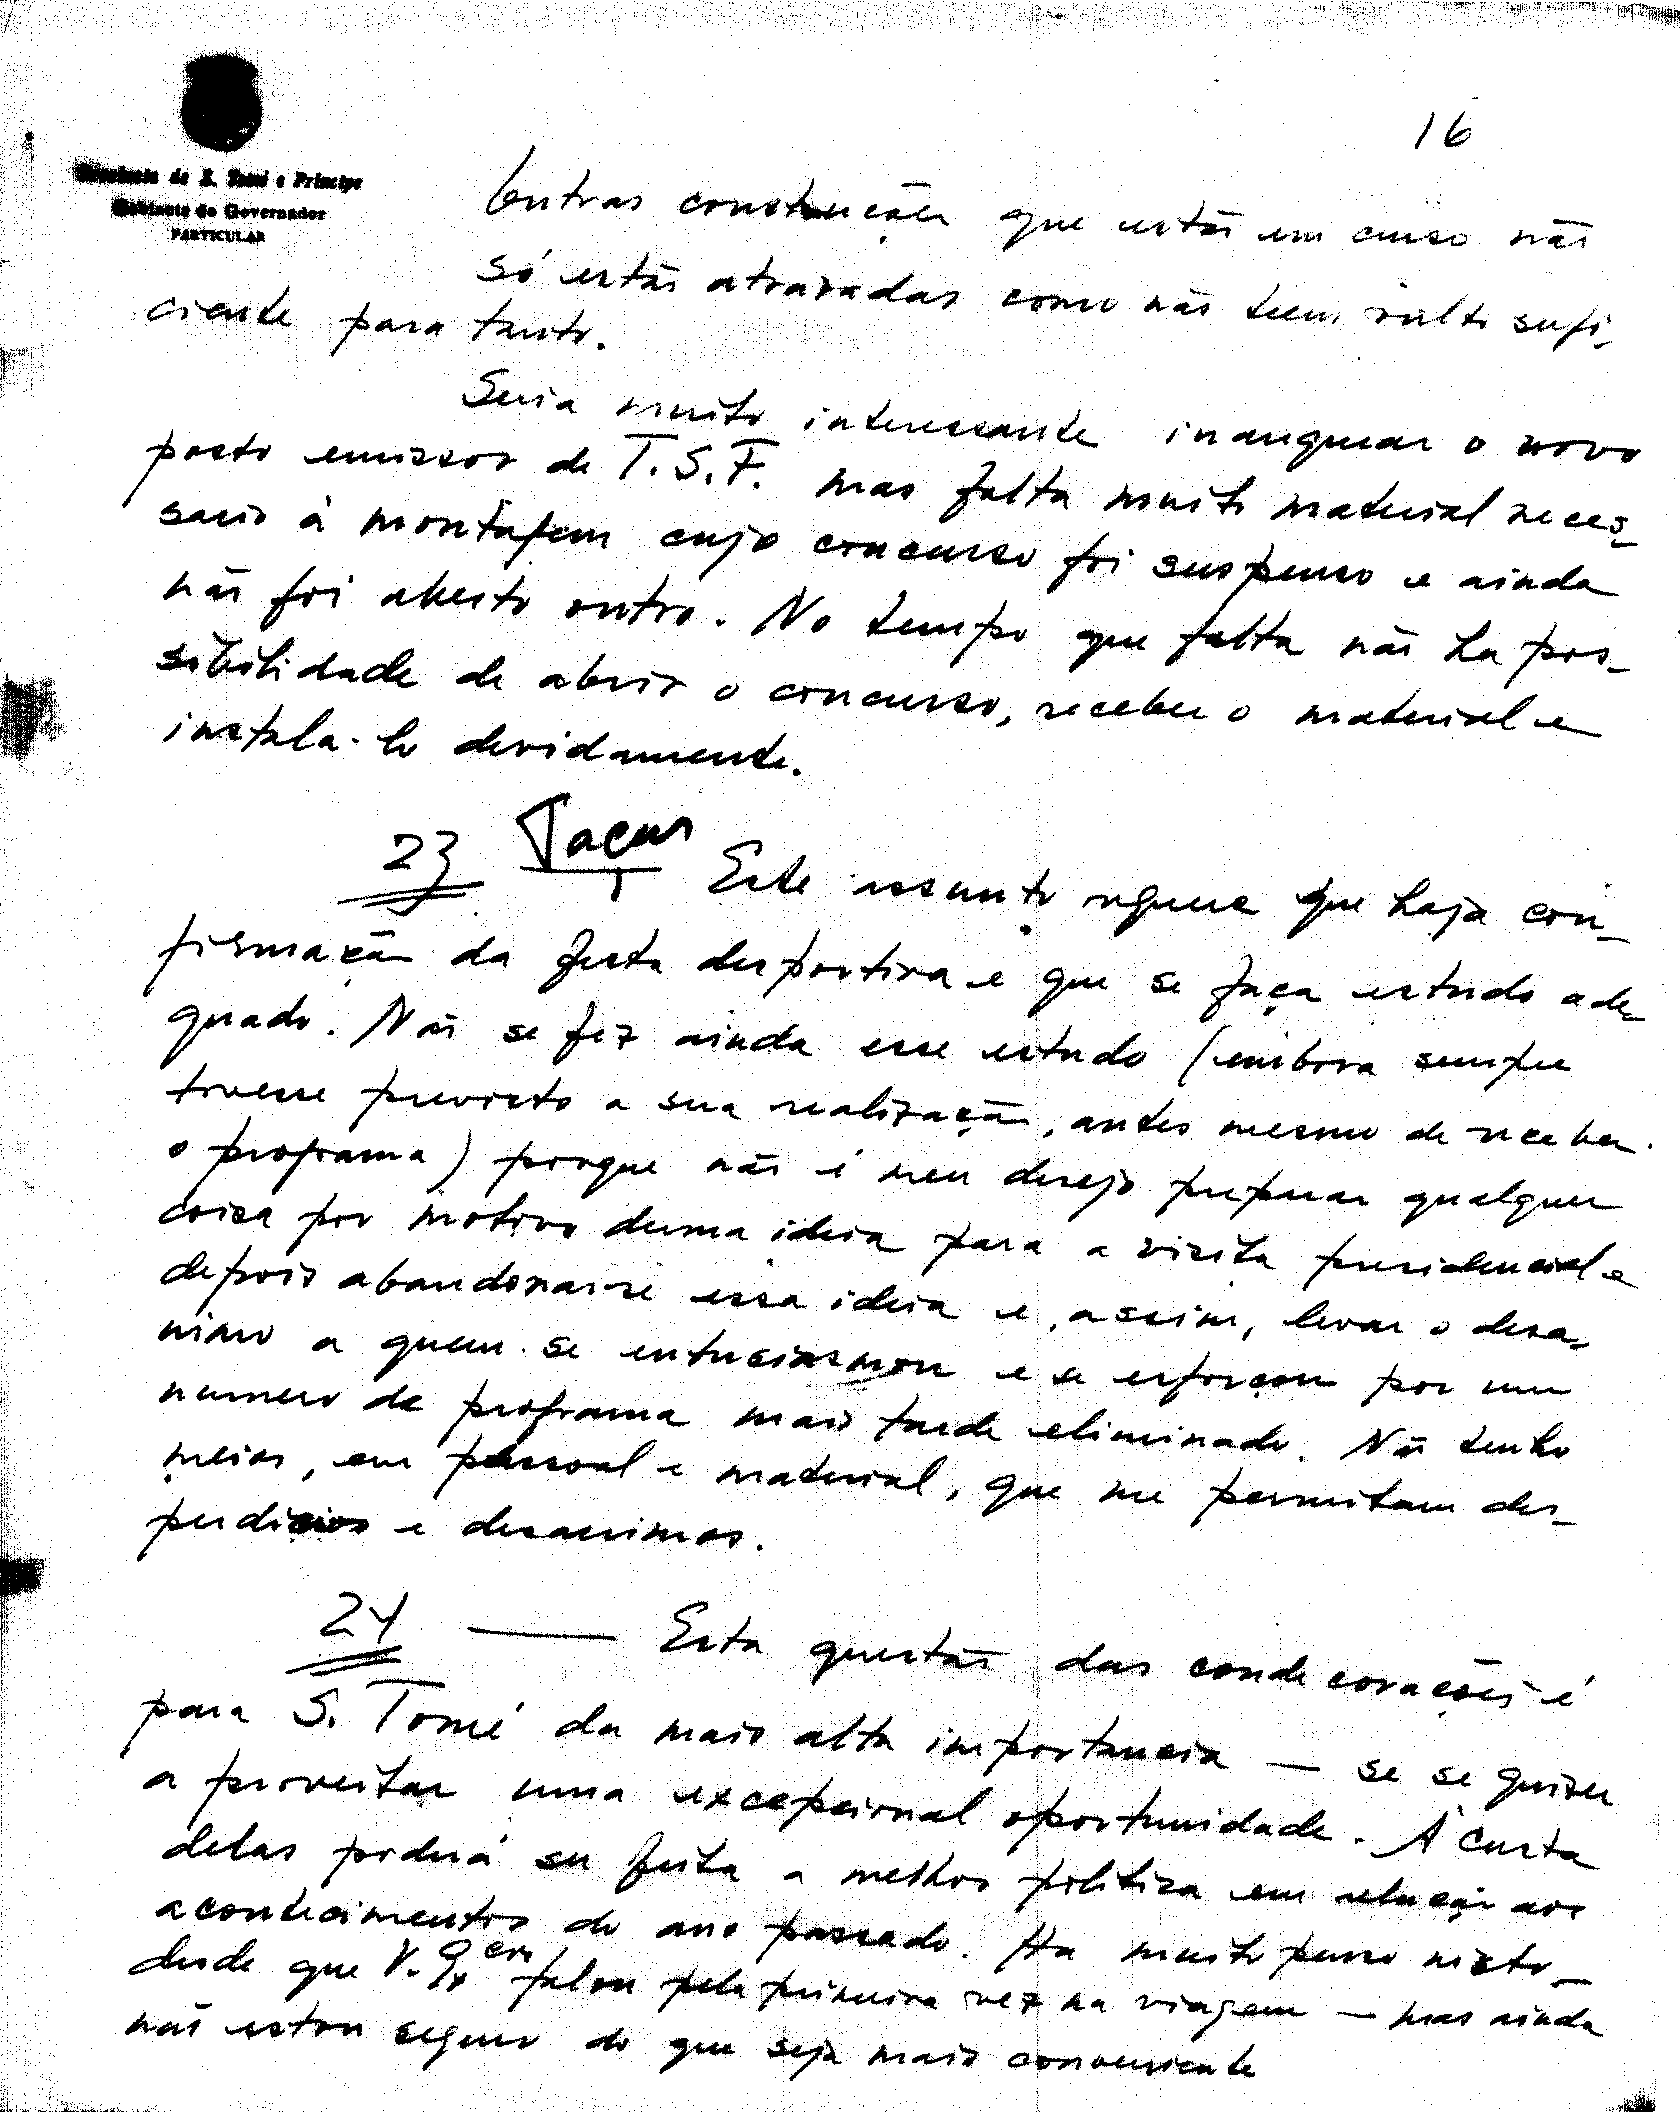 16
de S. Tomé e Principe
Gabinete do Governador
PARTICULAR
Outras construções que estão em curso não
só estão atrazadas como não teem vulto sufi-
ciente para tanto.
Seria muito interessante inaugurar o novo
posto emissor de T.S.F. mas falta muito material neces-
sario á montagem cujo concurso foi suspenso e ainda
não foi aberto outro. No tempo que falta não ha pos-
sibilidade de abrir o concurso, receber o material e
instala-lo devidamente.
23 Taças Este assunto requere que haja con-
firmação da festa desportiva e que se faça estudo ade-
quado. Não se fez ainda esse estudo (embora sempre
tivesse previsto a sua realização, antes mesmo de receber
o programa) porque não é meu desejo preparar qualquer
coisa por motivo duma ideia para a visita presidencial e
depois abandonar-se essa ideia e, assim, levar o desa-
nimo a quem se entusiasmou e se esforçou por um
numero de programa mais tarde eliminado. Não tenho
meios, em pessoal e material, que me permitam des-
perdicios e desanimos.
24 — Esta questão das condecorações é
para S. Tomé da mais alta importancia — se se quizer
aproveitar uma excepcional oportunidade. Á custa
delas poderá ser feita a melhor politica em relação aos
acontecimentos do ano passado. Ha muito penso nisto —
desde que V. Ex.cia falou pela primeira vez na viagem — mas ainda
não estou seguro do que seja mais conveniente